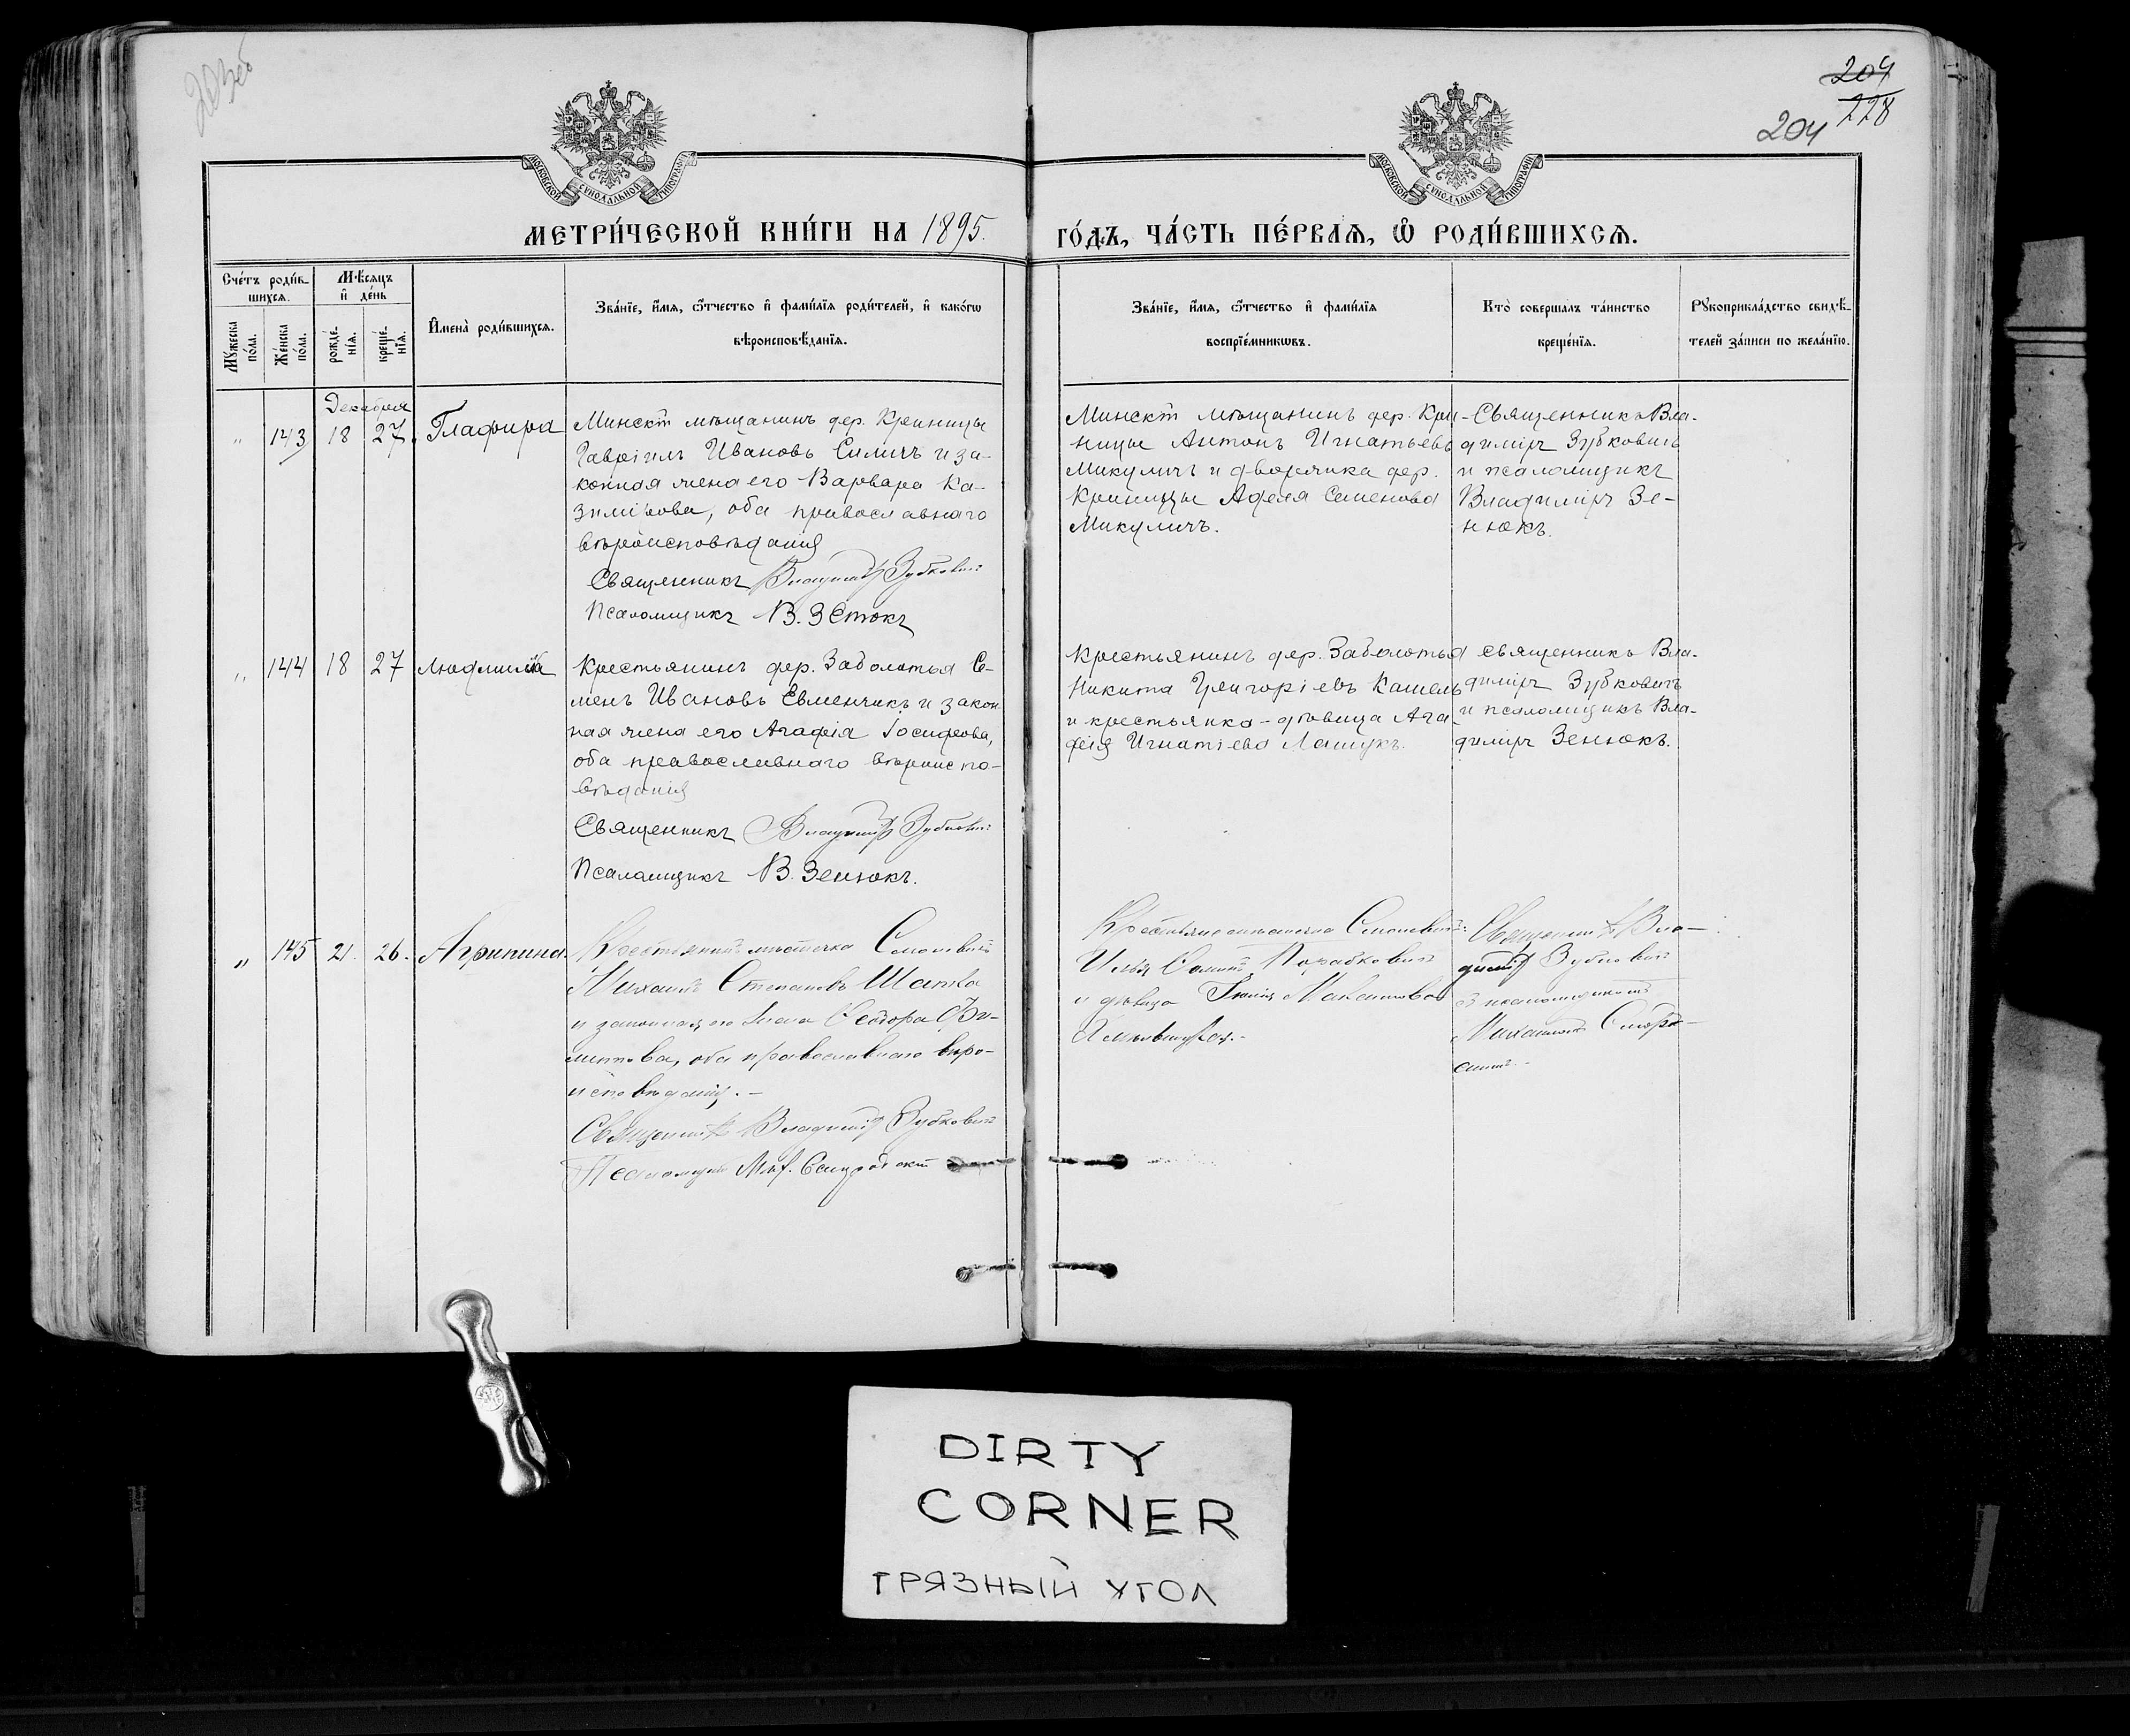 203об
204
228
204
МОСКОВСКОЙ СѴНОДАЛЬНОЙ ТИПОГРАФІИ
МОСКОВСКОЙ СѴНОДАЛЬНОЙ ТИПОГРАФІИ
МЕТРИ́ЧЕСКОЙ КНИ́ГИ НА 1895.
ГО́ДЪ, ЧА́СТЬ ПЕ́РВАѦ, Ѽ РОДИ́ВШИХСѦ.
Сче́тъ роди́в-
шихсѧ.
Мꙋ́жеска по́ла.
Же́нска по́ла.
Мѣ́сѧцъ и҆ де́нь
рожде́-нїѧ.
креще́-нїѧ.
И҆мена̀ роди́вшихсѧ.
Зва́нїе, и҆́мѧ, ѻ҆́тчество и҆ фами́лїѧ роди́телей, и҆ како́гѡ
вѣроисповѣ́данїѧ.
Зва́нїе, и҆́мѧ, ѻ҆́тчество и҆ фами́лїѧ
воспрїе́мникѡвъ.
Кто̀ соверша́лъ та́инство
креще́нїѧ.
Рꙋкоприкла́дство свидѣ́-
телей за́писи по жела́нїю.
Декабря
" 143 18 27. Глафира
Минскій мѣщанинъ дер. Криницы
Гавріилъ Ивановъ Силичъ и за-
конная жена его Варвара Ка-
зимірова, оба православнаго
вѣроисповѣданія
Священникъ Владиміръ Зубковичъ
Псаломщикъ В. Зенюкъ
Минскій мѣщанинъ дер. Кри-
ницы Антонъ Игнатьевъ
Микуличъ и дворянка дер.
Криницы Аделя Семенова
Микуличъ.
Священникъ Вла-
диміръ Зубковичъ
и псаломщикъ
Владиміръ Зе-
нюкъ.
" 144 18 27 Людмила
Крестьянинъ дер. Заболотья Се-
менъ Ивановъ Евменчикъ и закон
ная жена его Агафія Іосифова,
оба православнаго вѣроиспо-
вѣданія
Священникъ Владиміръ Зубковичъ
Псаломщикъ В. Зенюкъ.
Крестьянинъ дер. Заболотья
Никита Григоріевъ Кашель
и крестьянка-дѣвица Ага-
фія Игнатіева Лашукъ.
священникъ Вла-
диміръ Зубковичъ
и псаломщикъ Вла-
диміръ Зенюкъ.
" 145 21. 26. Агрипина.
Крестьянинъ мѣстечка Смолевичъ
Михаилъ Степановъ Шатка
и законная его жена Ѳеодора
оба православнаго вѣро-
исповѣданія.-
Священникъ Владиміръ Зубковичъ
Псаломщикъ Мих.
Крестьяне мѣстечка Смолевичъ:
Илья
и дѣвица Максимова
Священникъ Вла-
диміръ Зубковичъ
съ псаломщикомъ
Михаиломъ
DIRTY
CORNER
ГРЯЗНЫЙ УГОЛ